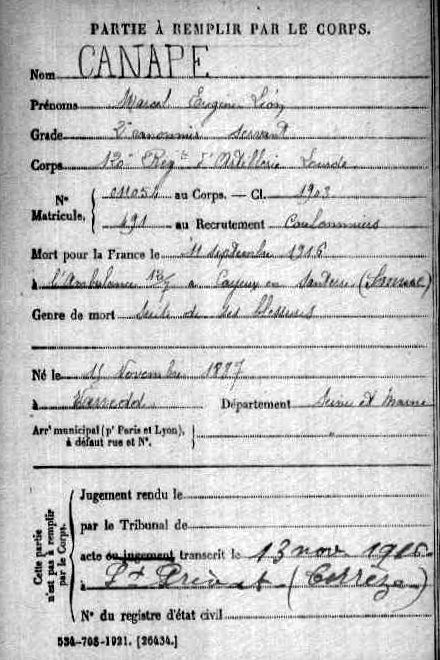 PARTIE À REMPLIR PAR LE CORPS.
Nom CANAPE
Prénoms Marcel Eugène Léon
Grade 2e canonnier servant
Corps 120e Rég d'Artillerie Lourde
Nº Matricule. 011054 au Corps. — Cl. 1903
491 au Recrutement Coulommiers
Mort pour la France le 21 septembre 1916
à l'Ambulance à Cayeux en Santerre (Somme)
Genre de mort Suite de ses blessures
Né le 15 Novembre
à Département Seine et Marne
Arrt municipal (pr Paris et Lyon), à défaut rue et Nº. "
Cette partie n'est pas à remplir par le Corps.
Jugement rendu le
par le Tribunal de
acte ou jugement transcrit le 13 nov. 1916
à St Privat (Corrèze)
Nº du registre d'état civil
534-708-1921. [26434.]